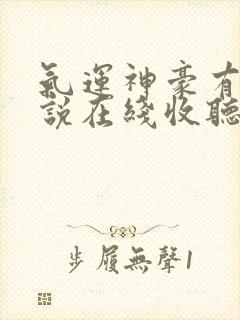 氣運神豪有
說在綫收聽
步履無聲1